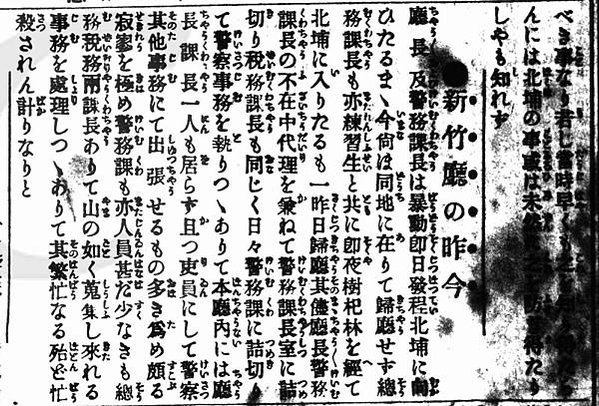 べき事なり若し當時早く
んには北埔の事或は未然 防ぎ得たり
しやも知れず
●新竹廳の昨今
廳長及警務課長は暴動即日發程北埔に向
ひたるまゝ今尚は同地に在りて歸廳せず總
務課長も亦練習生と共に即夜樹杞林を經て
北埔に入りたるも一昨日歸廳其儘廳長警務
課長の不在中代理を兼ねて警務課長室に詰
切り税務課長も同じく日々警務課に詰切り
て警察事務を執りつゝありて本廳内には廳
長課長一人も居らず且つ吏員にして警察
其他事務にて出張せるもの多き爲め頗る
寂寥を極め警務課も亦人員甚だ少なきも總
務税務兩課長ありて山の如く蒐集し來れる
事務を處理しつゝありて其繁忙なる殆ど忙
殺されん計りなりと